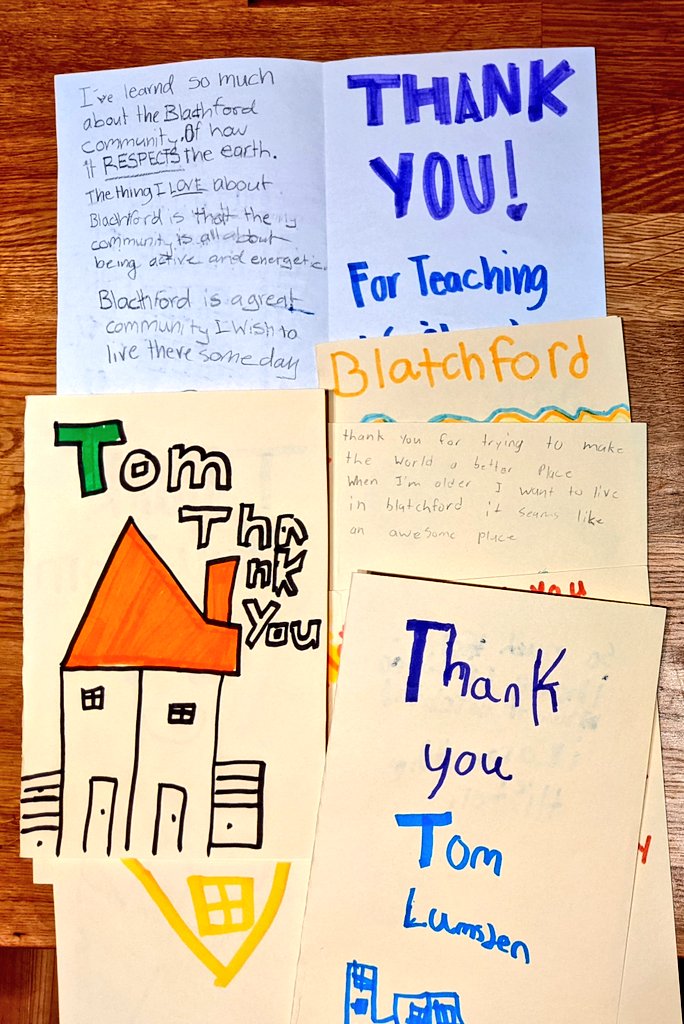 I've learnd so much
about the Blachford
community. Of how
it RESPECTS the earth.
The thing I LOVE about
Blachford is that the
community is all about
being active and energetic.
Blachford is a great
community I wish to
live there some day
THANK
YOU!
For Teaching
Blatchford
thank you for trying to make
the world a better place
When I'm older I want to live
in blatchford it seams like
an awesome place
you
Tom
Tha
nk
you
Thank
you
Tom
Lumsden
y